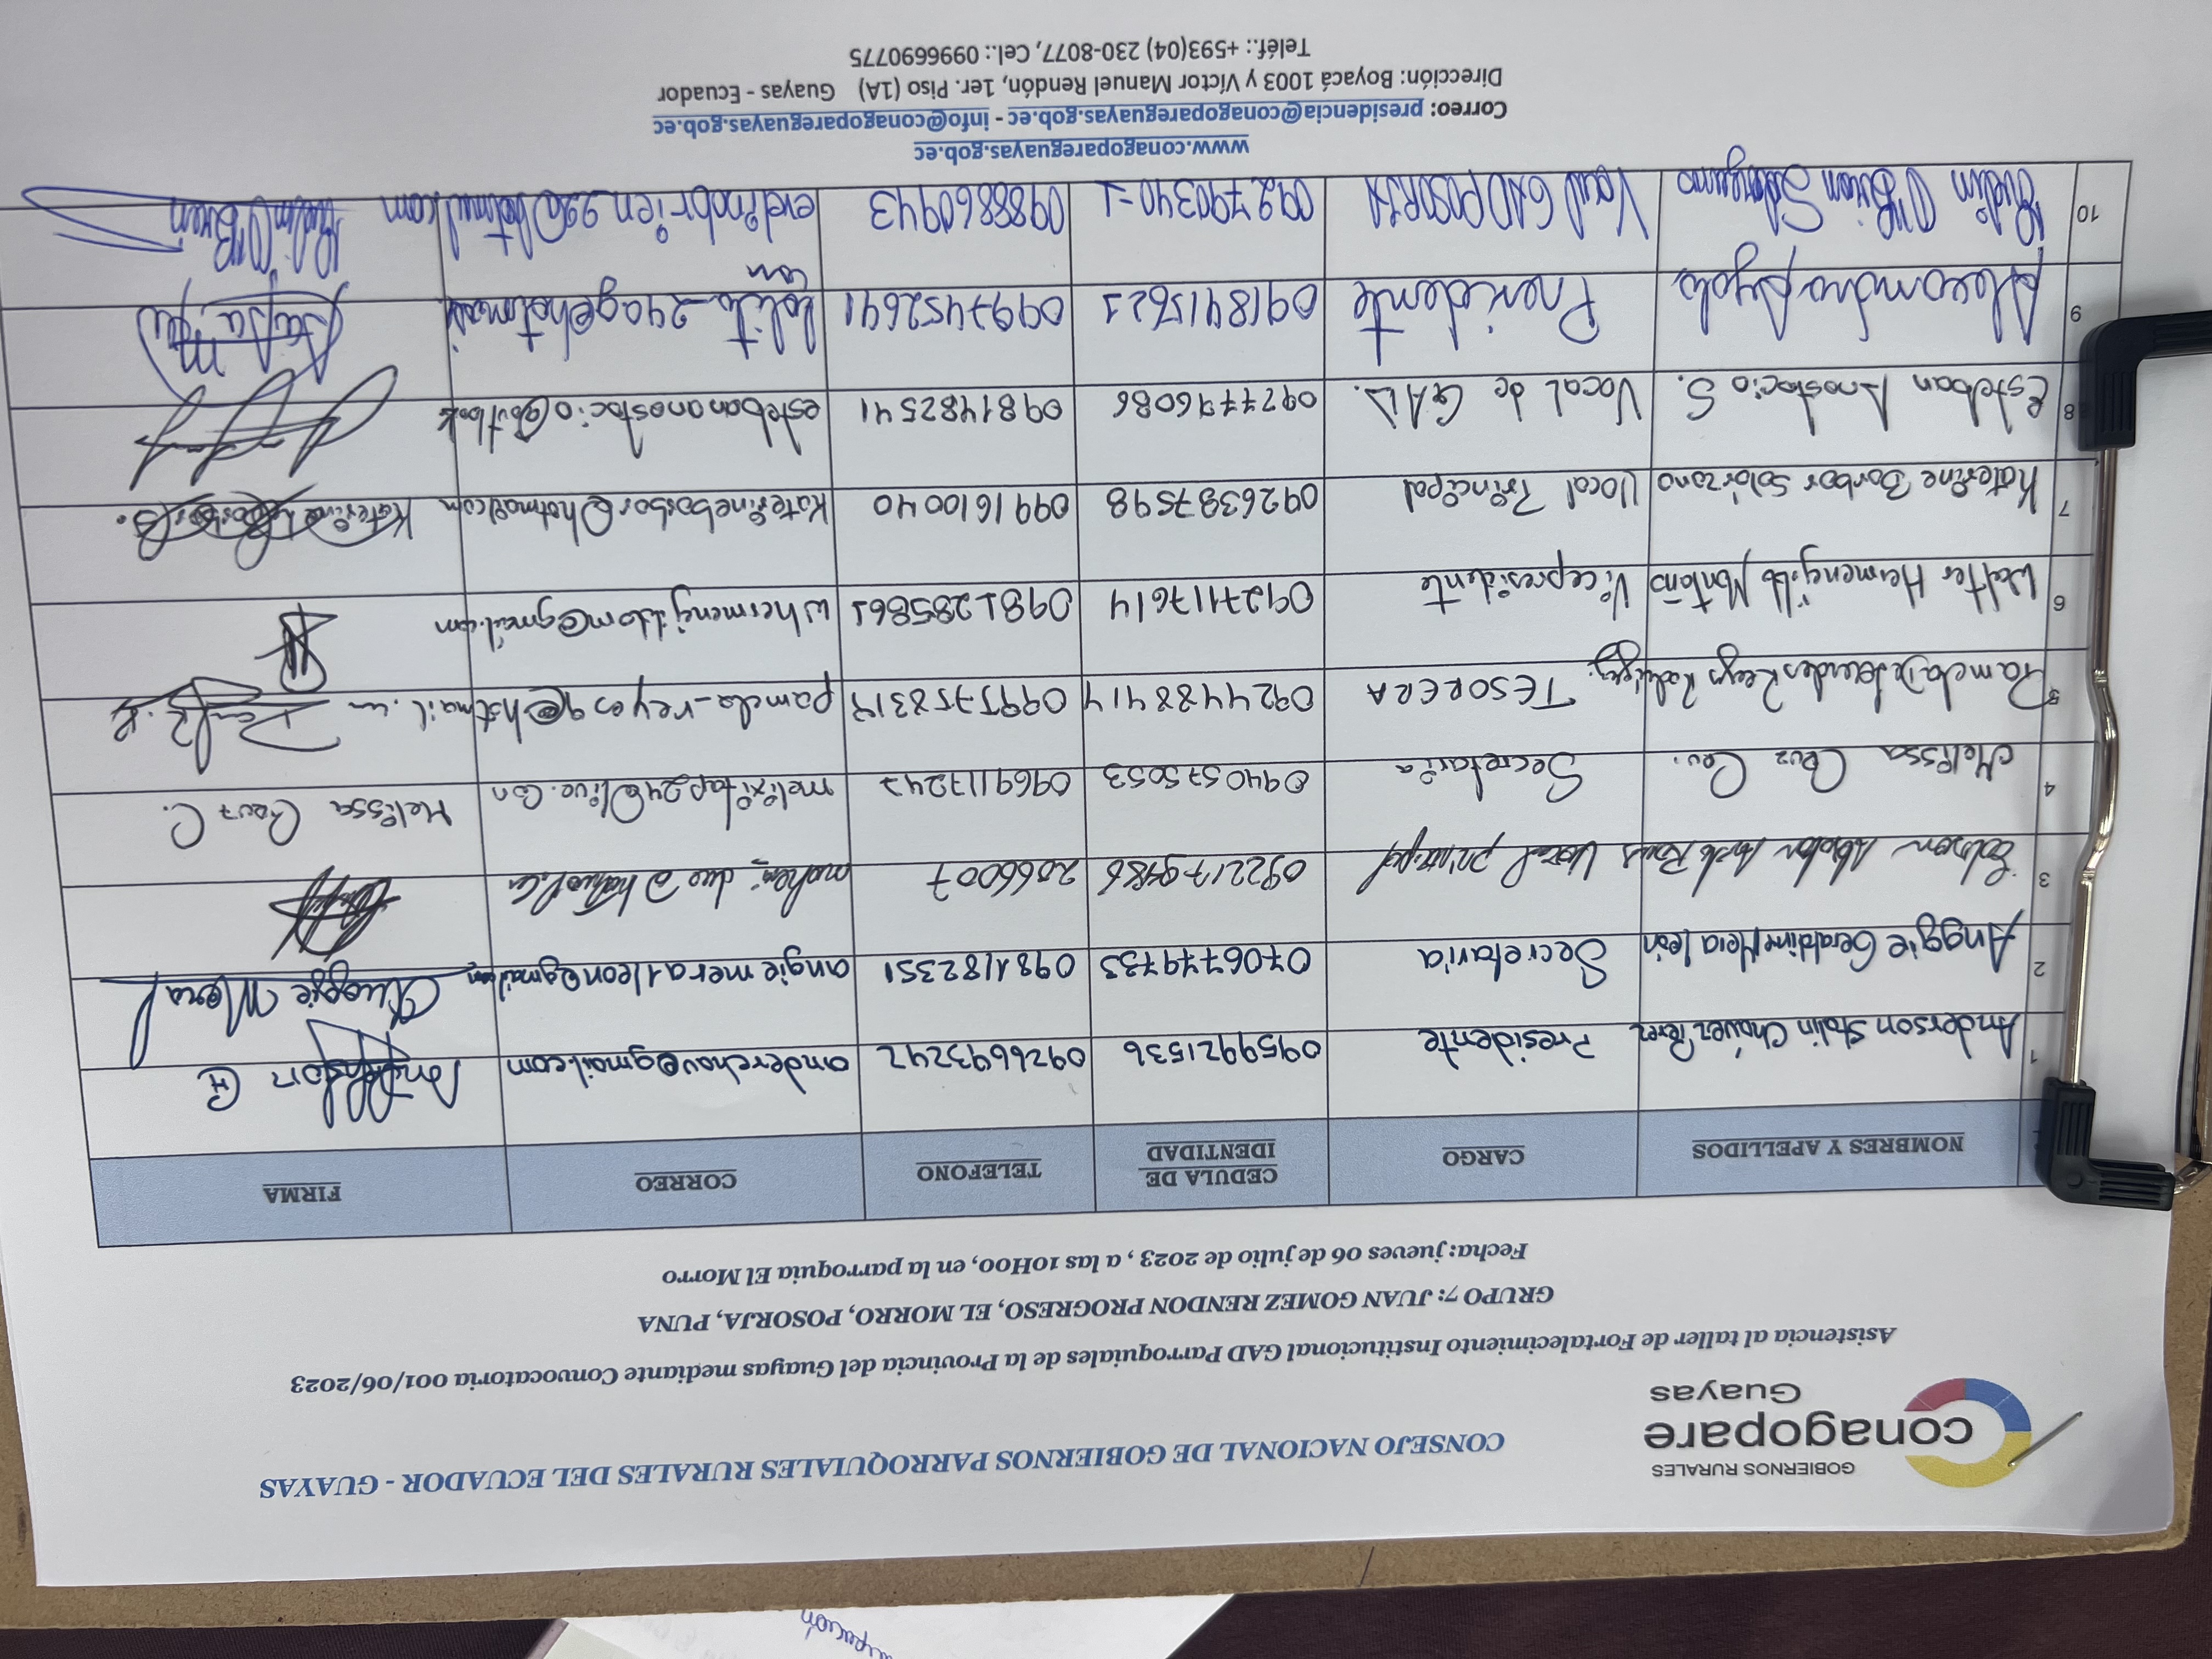 GOBIERNOS RURALES
conagopare
Guayas
CONSEJO NACIONAL DE GOBIERNOS PARROQUIALES RURALES DEL ECUADOR - GUAYAS
Asistencia al taller de Fortalecimiento Institucional GAD Parroquiales de la Provincia del Guayas mediante Convocatoria 001/06/2023
GRUPO 7: JUAN GOMEZ RENDON PROGRESO, EL MORRO, POSORJA, PUNA
Fecha: jueves 06 de julio de 2023 , a las 10H00, en la parroquia El Morro
NOMBRES Y APELLIDOS CARGO CEDULA DE IDENTIDAD TELEFONO CORREO FIRMA
1 Anderson Stalin Chávez Pérez Presidente 0959921536 0926693242 anderchav@gmail.com
2 Anggie Geraldine Mera León Secretaria 0706779733 0981182351 angiemera1leon@gmail.com Anggie Mera
3 Edison Vocal principal 2066007
4 Melissa Cruz Secretaria 0940575053 0969117242 Melissa Cruz C.
5 Pamela Reyes TESORERA 0924488414 pamela_reyes9@hotmail.
6 Walter Hermenegildo Montaño Vicepresidente 0927117614 0981285861 whermengildom@gmail.com
7 Katerine Borbor Solórzano Vocal Principal 0926387598 0991610040 Katerineborbor@hotmail.com
8 Esteban Anastacio S. Vocal de GAD. 0927796086 0981482541 estebananastacio@outlook
9 Alexandra Ayala Presidente 0918415621 0997452641 lolita_240@hotmail. com
10 Evelin O'Brien Vocal GAD POSORJA 092790340-1 0988860943 evelinobrien22@hotmail.com Evelin O'Brien
www.conagopareguayas.gob.ec
Correo: presidencia@conagopareguayas.gob.ec - info@conagopareguayas.gob.ec
Dirección: Boyacá 1003 y Víctor Manuel Rendón, 1er. Piso (1A) Guayas - Ecuador
Teléf.: +593(04) 230-8077, Cel.: 0996690775